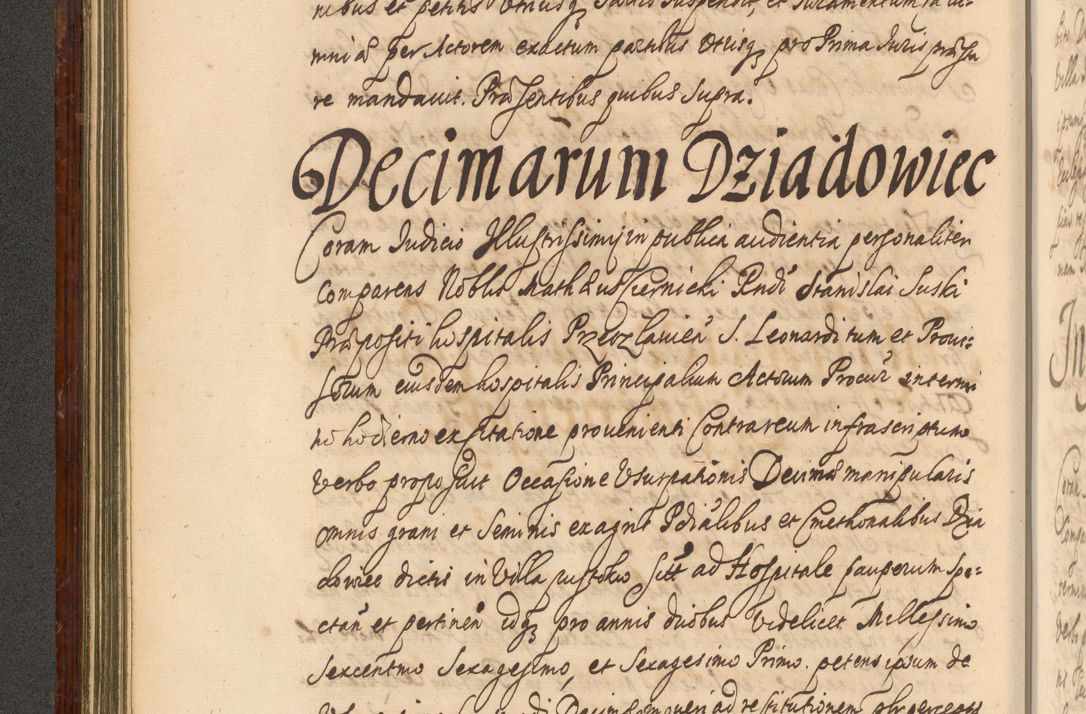 nibus et petitis utriusq suspendit, et Juramentum
mniæ per Actorem exactum partibus utrisq pro Prima Juris præsta
re mandavit. Præsentibus quibus supra.
Decimarum Dziadowiec
Coram Judicio Illustrissimi in publica audientia personaliter
Comparens Noblis Mathæus Czernicki Rndi Stanislai Suski
Præpositi hospitalis Przedzlavien S. Leonardi tum et Provi=
sorum eiusdem hospitalis Principalium Actorum Procur in termi
no hodierno ex citatione provenienti Contra reum infrascriptum
verbo proposuit Occasione Usurpationis Decimæ manipularis
omnis grani et seminis ex agris Pdialibus et Cmethonalibus Dzia
dowiec dictis in Villa sitt ad Hospitale pauperum spe=
ctan et pertinen idq pro annis duobus videlicet Millesimo
sexcentmo sexagesimo, et sexagesimo Primo. petens ipsum de
ad restitutionem